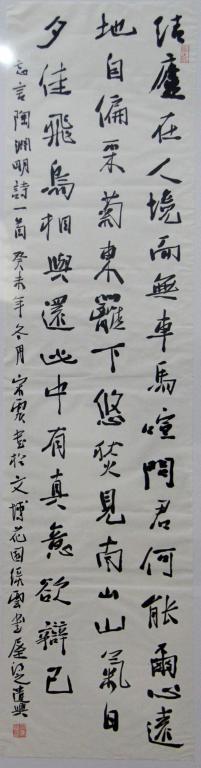 結廬在人境而無車馬喧問君何能爾心遠
地自偏采菊東籬下悠然見南山山氣日
夕佳飛鳥相與還此中有真意欲辯已
忘言陶淵明詩一首癸未年冬月宋震書於文博花園雲書屋